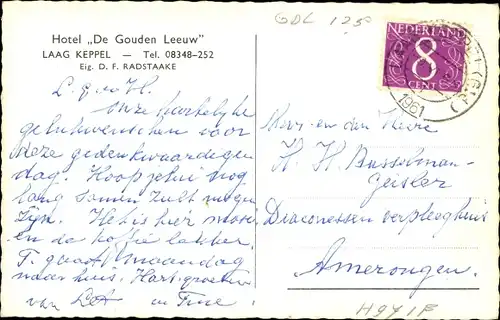 Hotel „De Gouden Leeuw"
LAAG KEPPEL — Tel. 08348-252
Eig. D. F. RADSTAAKE
GDL 125
NEDERLAND
8
CENT
1961
L. G. en H.
Onze hartelijke
gelukwenschen voor
deze gedenkwaardigen
dag! Hoop jelui nog
lang samen zult mogen
zijn. Het is hier mooi
en de koffie lekker.
T. gaat maandag
naar huis. Hart. groeten
van en Trine
Mevr. en den Heere
H. H. Busselman-
Geisler
Diaconessen verpleeghuis
Amerongen.
H941F